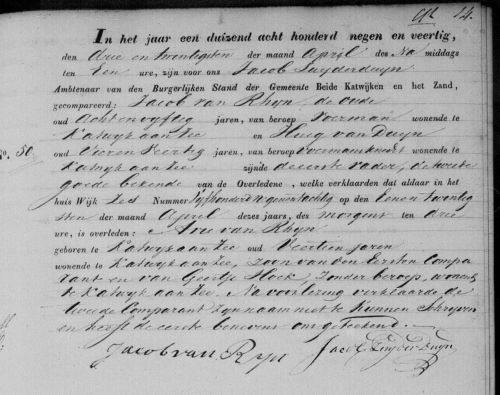 14.
In het jaar een duizend acht honderd negen en veertig,
den drie en twintigsten der maand April des Na middags
ten Een ure, zijn voor ons Jacob Zuyderduyn
Ambtenaar van den Burgerlijken Stand der Gemeente Beide Katwijken en het Zand,
gecompareerd: Jacob van Rhyn, de oude
oud Achtenvyftig jaren, van beroep Voerman wonende te
Katwyk aan Zee en Huig van Duyn
oud jaren, van beroep Voermansknecht wonende te
No. 50. Katwyk aan Zee zijnde de eerste vader, de tweede
goede bekende van de Overledene, welke verklaarden dat aldaar in het
huis Wijk Zes Nummer op den Eenen twintig
sten der maand April dezes jaars, des morgens ten drie
ure, is overleden: Arie van Rhyn
geboren te Katwyk aan Zee oud Veertien jaren
wonende te Katwyk aan Zee, zoon van den Eersten Compa
rant en van Geertje Hoek, Zonder beroep, wonende
te Katwyk aan Zee. Na voorlezing verklaarde de
tweede Comparant zyn naam niet te Kunnen Schryven
en heeft de eerste benevens ons geteekend.
Jacob van Ryn Jac. Zuyderduyn